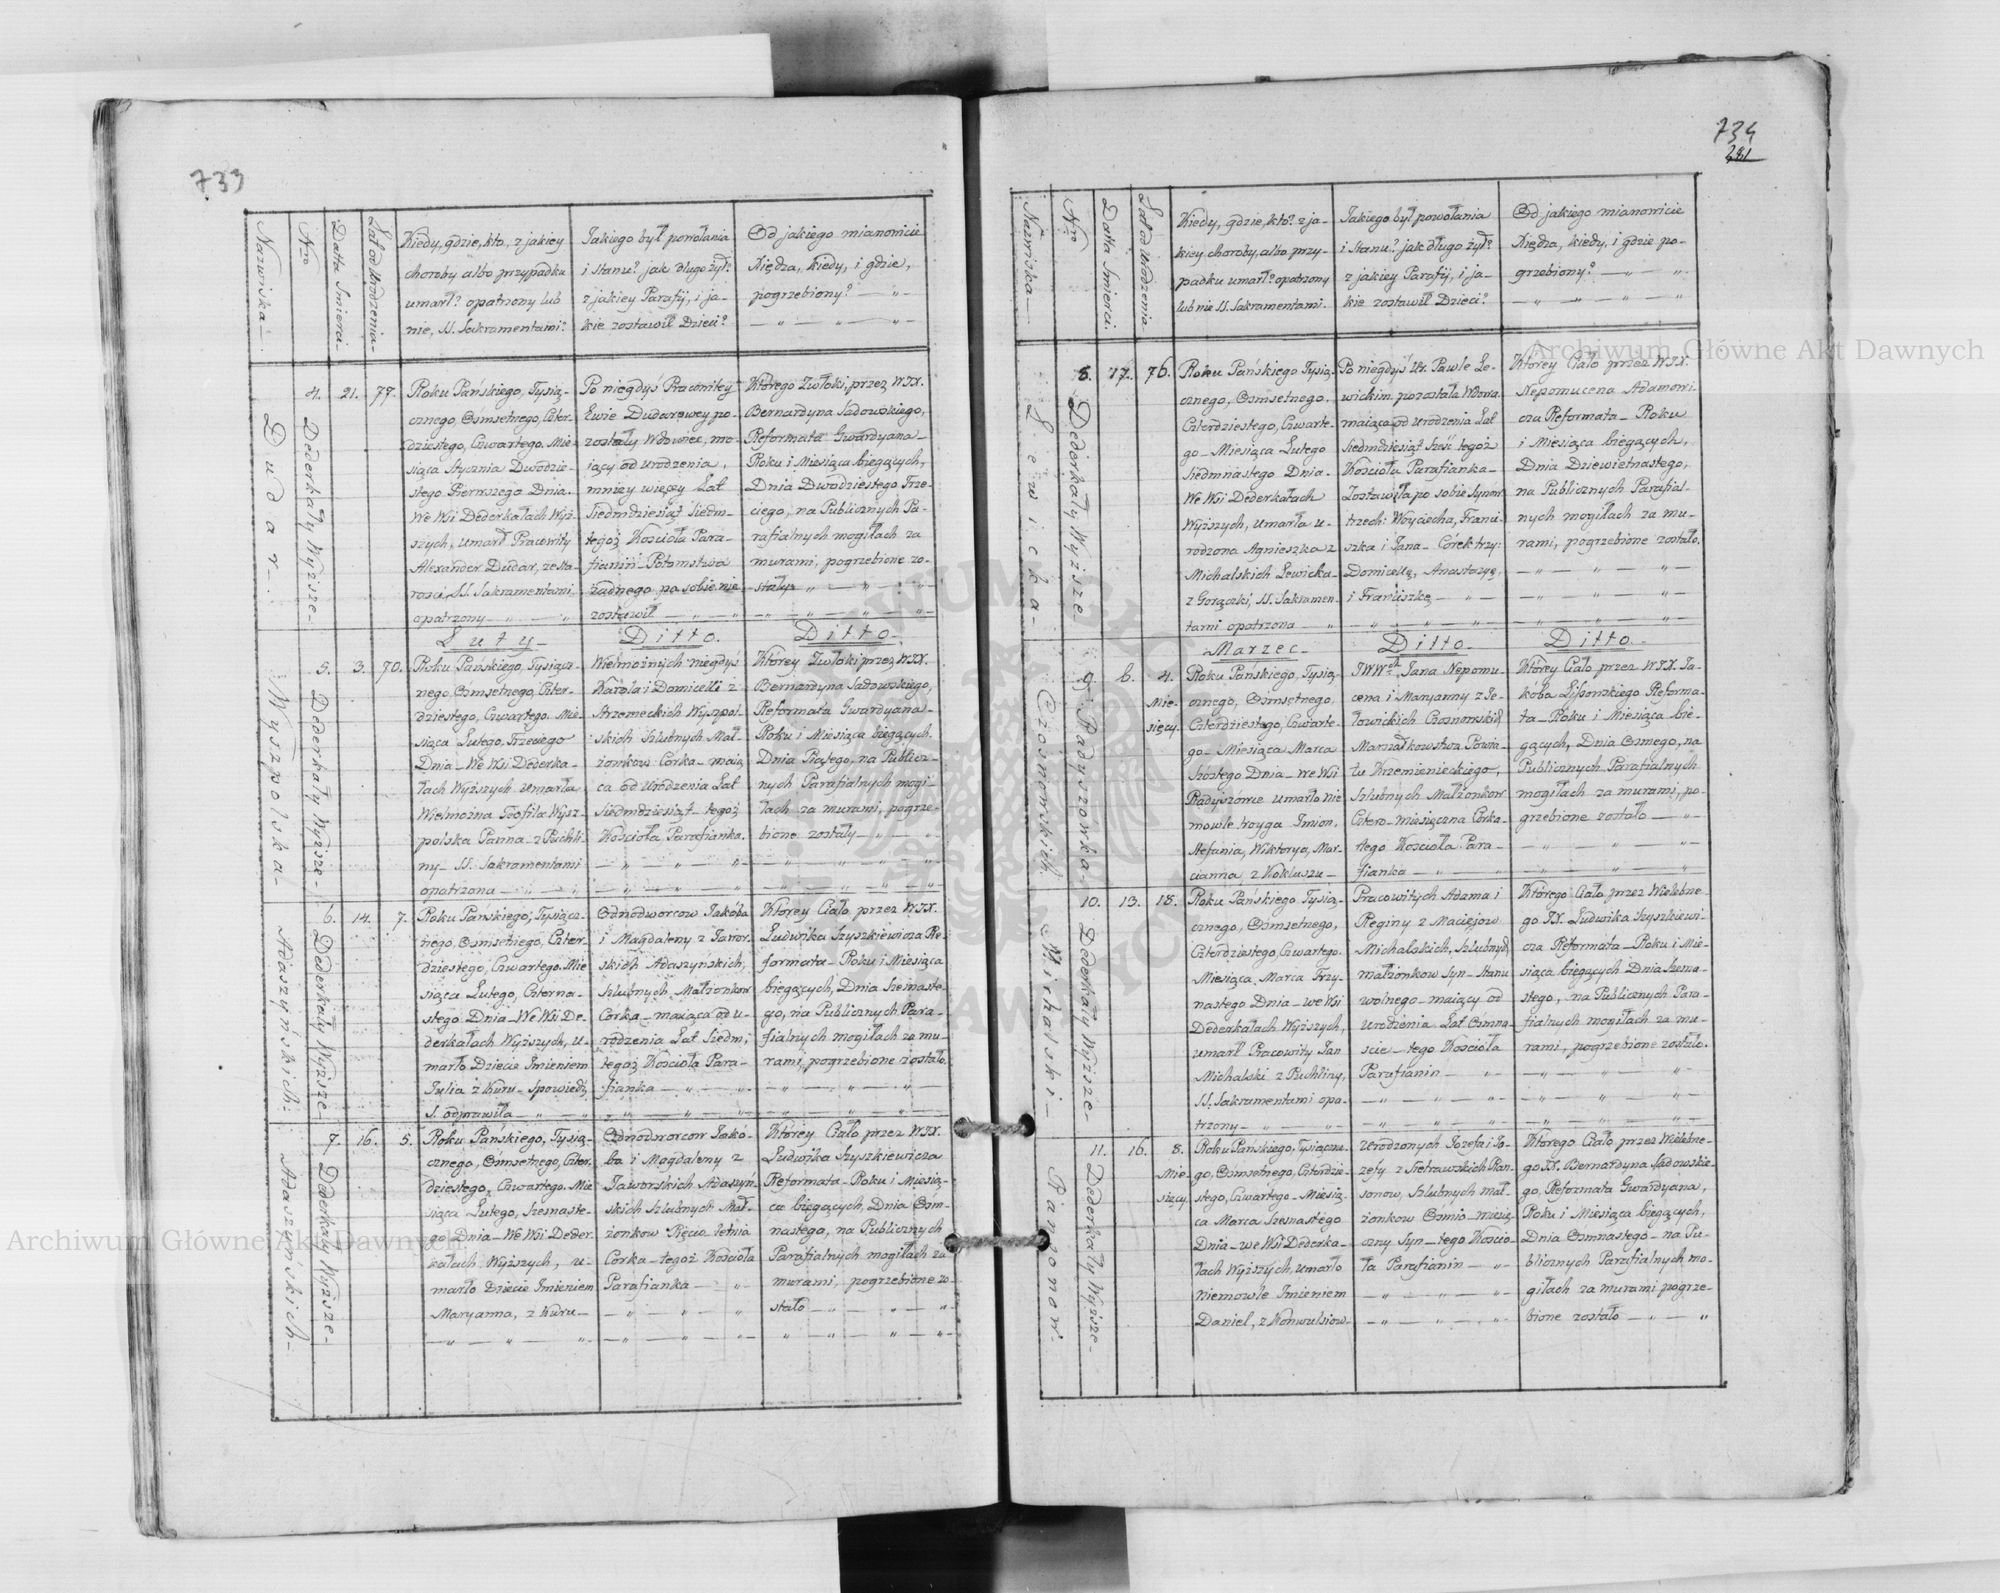 733
Nazwiska
Nro
Datta Śmierci
Lat od Urodzenia
Kiedy, gdzie, kto, z jakiey
choroby albo przypadku
umarł? opatrzony lub
nie, SS. Sakramentami?
Jakiego był powołania
i Stanu? jak długo żył?
z jakiey Parafii, i ja-
kie zostawił Dzieci?
Od jakiego mianowicie
Xiędza, kiedy, i gdzie,
pogrzebiony?
Dudar
4.
Dederkały Wyższe
21.
77.
Roku Pańskiego, Tysiąc-
cznego, Ośmsetnego, Czter-
dziestego, Czwartego. Mie-
siąca Stycznia Dwódzie-
stego Pierwszego Dnia.
We Wsi Dederkałach Wyż-
szych, umarł Pracowity
Alexander Dudar, ze sta-
rości, SS. Sakramentami
opatrzony
Po niegdyś Pracowitey
Ewie Dudarowey po-
zostały Wdowiec, ma-
iący od urodzenia,
mniey więcey Lat
Siedmdziesiąt Siedm
tegoż Kościoła Para-
fianin Potomstwa
żadnego po sobie nie
zostawił
Którego Zwłoki, przez WJX.
Bernardyna Sadowskiego,
Reformata Gwardyana
Roku i Miesiąca biegących,
Dnia Dwudziestego Trze-
ciego, na Publicznych Pa-
rafialnych mogiłach za
murami, pogrzebione zo-
stały
Luty
Ditto.
Ditto
Wyszpolska
5.
Dederkały Wyższe
3.
70.
Roku Pańskiego, Tysiącz-
nego, Osmsetnego, Czter-
dziestego, Czwartego. Mie-
siąca Lutego. Trzeciego
Dnia We Wsi Dederka-
łach Wyższych umarła
Wielmożna Teofila Wysz-
polska Panna z Puchli-
ny SS. Sakramentami
opatrzona
Wielmożnych niegdyś
Karola i Domicelli z
Strzemeckich Wyszpol-
skich Szlubnych Mał-
żonkow Córka maią
ca od Urodzenia Lat
Siedmdziesiąt tegoż
Kościoła Parafianka.
Którey Zwłoki przez WJX.
Bernardyna Sadowskiego,
Reformata Gwardyana
Roku i Miesiąca biegących.
Dnia Piątego, na Publicz-
nych Parafialnych mogi-
łach za murami, pogrze-
bione zostały
Adaszyńskich
6.
Dederkały Wyższe
14.
7.
Roku Pańskiego, Tysiącz-
nego, Osmsetnego, Czter-
dziestego, Czwartego. Mie
siąca Lutego, Czterna-
stego Dnia We Wsi De-
derkałach Wyższych, u-
marło Dziecie Imieniem
Julia z Kuru Spowiedź
S. odprawiła
Odnodworcow Jakóba
i Magdaleny z Jawor-
skich Adaszyńskich,
Szlubnych Małżonkow
Córka maiąca od u-
rodzenia Lat Siedm,
tegoż Kościoła Para-
fianka
Którey Ciało przez WJX.
Ludwika Szyszkiewicza Re-
formata Roku i Miesiąca
biegących, Dnia Szesnaste-
go, na Publicznych Para-
fialnych mogiłach za mu-
rami, pogrzebione zostało.
Adaszyńskich
7.
Dederkały Wyższe
16.
5.
Roku Pańskiego, Tysią-
cznego, Ośmsetnego, Czter-
dziestego, Czwartego. Mie
siąca Lutego, Szesnaste-
go Dnia We Wsi Deder-
kałach Wyższych, u-
marło Dziecie Imieniem
Maryanna, z Kuru
Odnodworcow Jakó-
ba i Magdaleny z
Jaworskich Adaszyń-
skich Szlubnych Mał-
żonkow Pięcio letnia
Córka tegoż Kościoła
Parafianka
Którey Ciało przez WJX.
Ludwika Szyszkiewicza
Reformata Roku i Miesią-
ca biegących, Dnia Osm-
nastego, na Publicznych
Parafialnych mogiłach za
murami, pogrzebione zo-
stało
734
281
Nazwiska
Nro
Datta Śmierci
Lat od Urodzenia
Kiedy, gdzie, kto? z ja-
kiey choroby, albo przy-
padku umarł? opatrzony
lub nie SS. Sakramentami.
Jakiego był powołania
i Stanu? jak długo żył?
z jakiey Parafii, i ja-
kie zostawił Dzieci?
Od jakiego mianowicie
Xiędza, kiedy, i gdzie po-
grzebiony?
Lewicka
8.
Dederkały Wyższe
17.
76.
Roku Pańskiego Tysią-
cznego, Osmsetnego,
Czterdziestego, Czwarte-
go Miesiąca Lutego
Siedmnastego Dnia
We Wsi Dederkałach
Wyższych, umarła u-
rodzona Agnieszka z
Michalskich Lewicka
z Gorączki, SS. Sakramen-
tami opatrzona
Po niegdyś Ur. Pawle Le-
wickim pozostała Wdowa.
maiąca od urodzenia Lat
Siedmdziesiąt Sześć tegoż
Kościoła Parafianka
Zostawiła po sobie Synow
trzech: Woyciecha, Franci-
szka i Jana Córek trzy:
Domicellę, Anastazyę,
i Franciszkę
Którey Ciało przez WJX.
Nepomucena Adamowi-
cza Reformata Roku
i Miesiąca biegących,
Dnia Dziewietnastego,
na Publicznych Parafial-
nych mogiłach za mu-
rami, pogrzebione zostało.
Marzec
Ditto
Ditto
Czosnowskich
9.
Radyszówka
6.
4.
Mie-
sięcy.
Roku Pańskiego, Tysią-
cznego, Ośmsetnego,
Czterdziestego, Czwarte-
go Miesiąca Marca
Szóstego Dnia We Wsi
Radyszówce umarło Nie
mowle troyga Imion,
Stefania, Wiktorya, Mar-
cianna z Kokluszu
JWW Jana Nepomu-
cena i Maryanny z Je-
łowickich Czosnowskich
Marszałkowstwa Powia-
tu Krzemienieckiego,
Szlubnych Małżonkow
Cztero-Miesięczna Córka
tego Kościoła Para-
fianka
Którey Ciało przez WJX. Ja-
kóba Reforma-
ta Roku i Miesiąca bie-
gących, Dnia Osmego, na
Publicznych Parafialnych
mogiłach za murami, po-
grzebione zostało
Michalski
10.
Dederkały Wyższe
13.
18.
Roku Pańskiego Tysią-
cznego, Ośmsetnego,
Czterdziestego, Czwartego.
Miesiąca Marca Trzy-
nastego Dnia we Wsi
Dederkałach Wyższych,
umarł Pracowity Jan
Michalski z Puchliny,
SS. Sakramentami opa-
trzony
Pracowitych Adama i
Reginy z Maciejow
Michalskich, Szlubnych
małżonkow Syn Stanu
wolnego maiący od
Urodzenia Lat Osmna-
ście tego Kościoła
Parafianin
Którego Ciało przez Wielebne-
go JX. Ludwika Szyszkiewi-
cza Reformata Roku i Mie-
siąca biegących Dnia Szesna-
stego, na Publicznych Para-
fialnych mogiłach za mu-
rami, pogrzebione zostało.
Pansonow
11.
Dederkały Wyższe
16.
8.
Mie-
sięcy.
Roku Pańskiego, Tysiączne-
go, Osmsetnego, Czterdzie-
stego, Czwartego Miesią-
ca Marca Szesnastego
Dnia we Wsi Dederka-
łach Wyższych, umarło
Niemowle Imieniem
Daniel, z Konwulsiow
Urodzonych Józefa i Jo-
zefy z Pan-
sonow, Szlubnych mał-
żonkow Ośmio miesię-
czny Syn tego Kościo-
ła Parafianin
Którego Ciało przez Wielebne-
go JX. Bernardyna Sadowskie-
go, Reformata Gwardyana,
Roku i Miesiąca biegących,
Dnia Osmnastego na Pu-
blicznych Parafialnych mo-
giłach za murami pogrze-
bione zostało
Archiwum Główne Akt Dawnych
Archiwum Główne Akt Dawnych